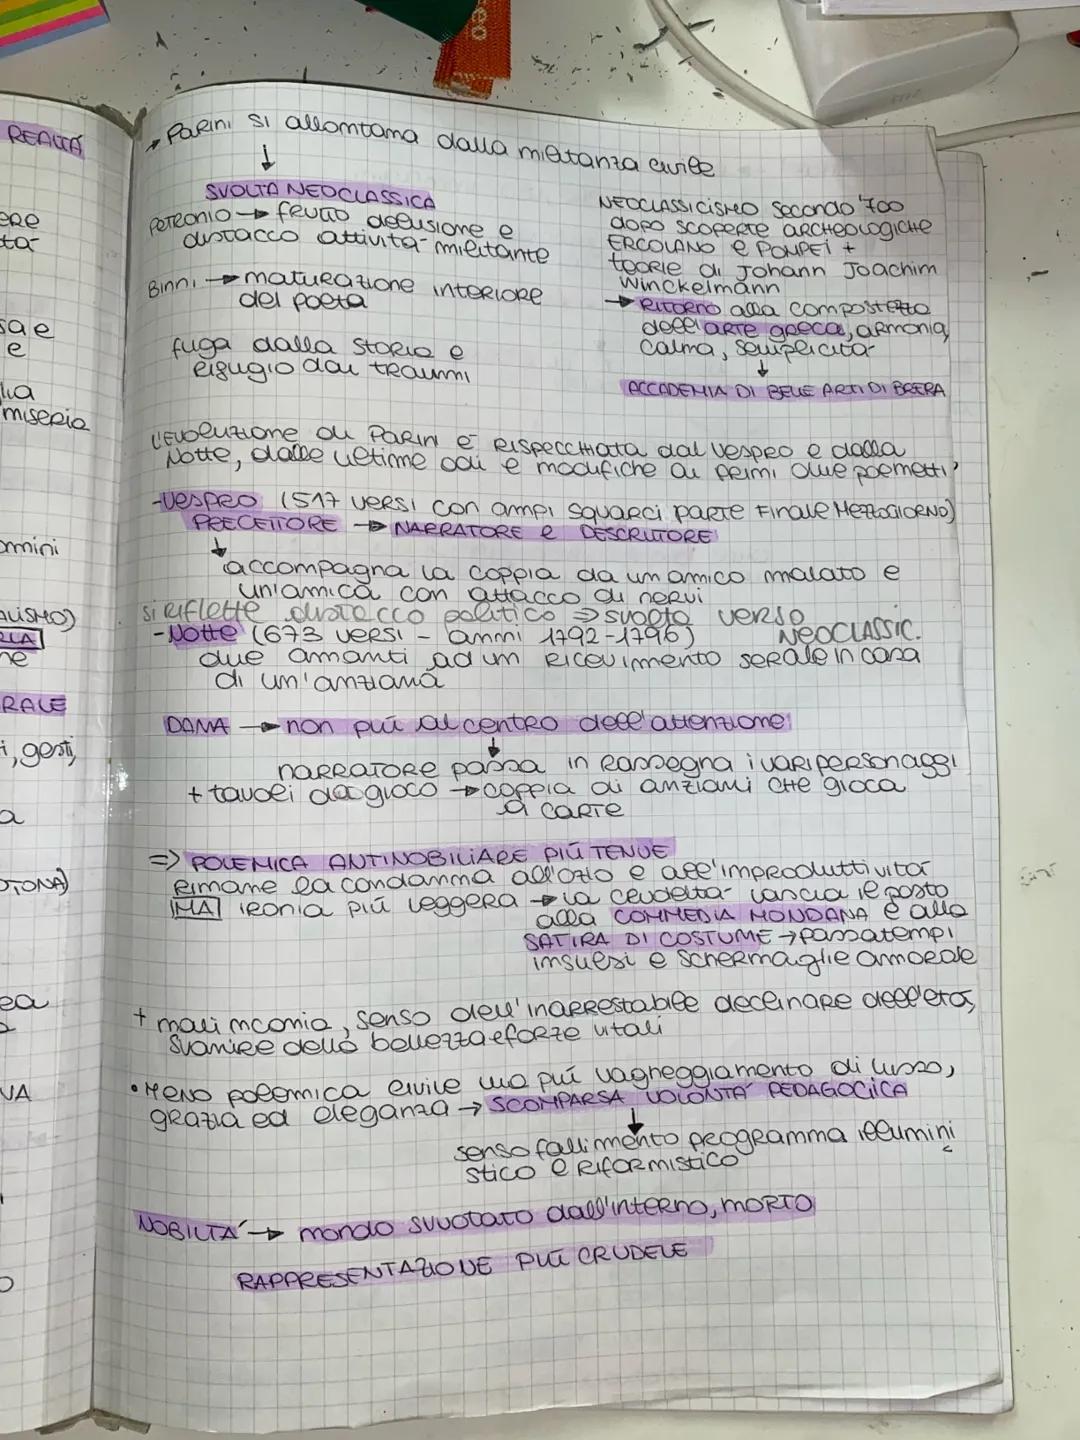 REALTÁ
ere
tá
sa e
e
lia
miseria
omini
ALISMO)
RLA
ne
RALE
i, gesti,
a
OTONA)
ea
VA
→ Parini si allontana dalla militanza civile
SVOLTA NEOCLASSICA
PETRONIO → frutto delusione e
distacco attività militante
Binni → maturazione interiore
del poeta
fuga dalla storia e
rifugio dai traumi
NEOCLASSICISMO secondo '700
dopo scoperte archeologiche
ERCOLANO e POMPEI +
teorie di Johann Joachim
Winckelmann
→ Ritorno alla compostezza
dell'arte greca, armonia,
calma, semplicità
↓
ACCADEMIA DI BELLE ARTI DI BRERA
L'evoluzione di Parini è rispecchiata dal Vespro e dalla
Notte, dalle ultime odi e modifiche ai primi due poemetti
- Vespro (517 versi con ampi squarci parte finale MEZZOGIORNO)
PRECETTORE → NARRATORE e DESCRITTORE
↓
accompagna la coppia da un amico malato e
un'amica con attacco di nervi
si riflette distacco politico ⇒ svolta verso
NEOCLASSIC.
- Notte (673 versi - anni 1792-1796)
due amanti ad un ricevimento serale in casa
di un'anziana
DAMA → non piú al centro dell'attenzione
↓
narratore passa in rassegna i vari personaggi
+ tavoli da gioco → coppia di anziani che gioca
a carte
⇒ POLEMICA ANTINOBILIARE PIÚ TENUE
Rimane la condanna all'ozio e all'improduttività
MA ironia piú leggera → la crudeltà lascia il posto
alla COMMEDIA MONDANA e alla
SATIRA DI COSTUME → passatempi
insulsi e schermaglie amorose
+ malinconia, senso dell'inarrestabile declinare dell'età,
svanire della bellezza e forze vitali
• Meno polemica civile ma piú vagheggiamento di lusso,
grazia ed eleganza → SCOMPARSA VOLONTÁ PEDAGOGICA
↓
senso fallimento programma illumini
stico e riformistico
NOBILTÁ → mondo svuotato dall'interno, MORTO
RAPPRESENTAZIONE PIÚ CRUDELE